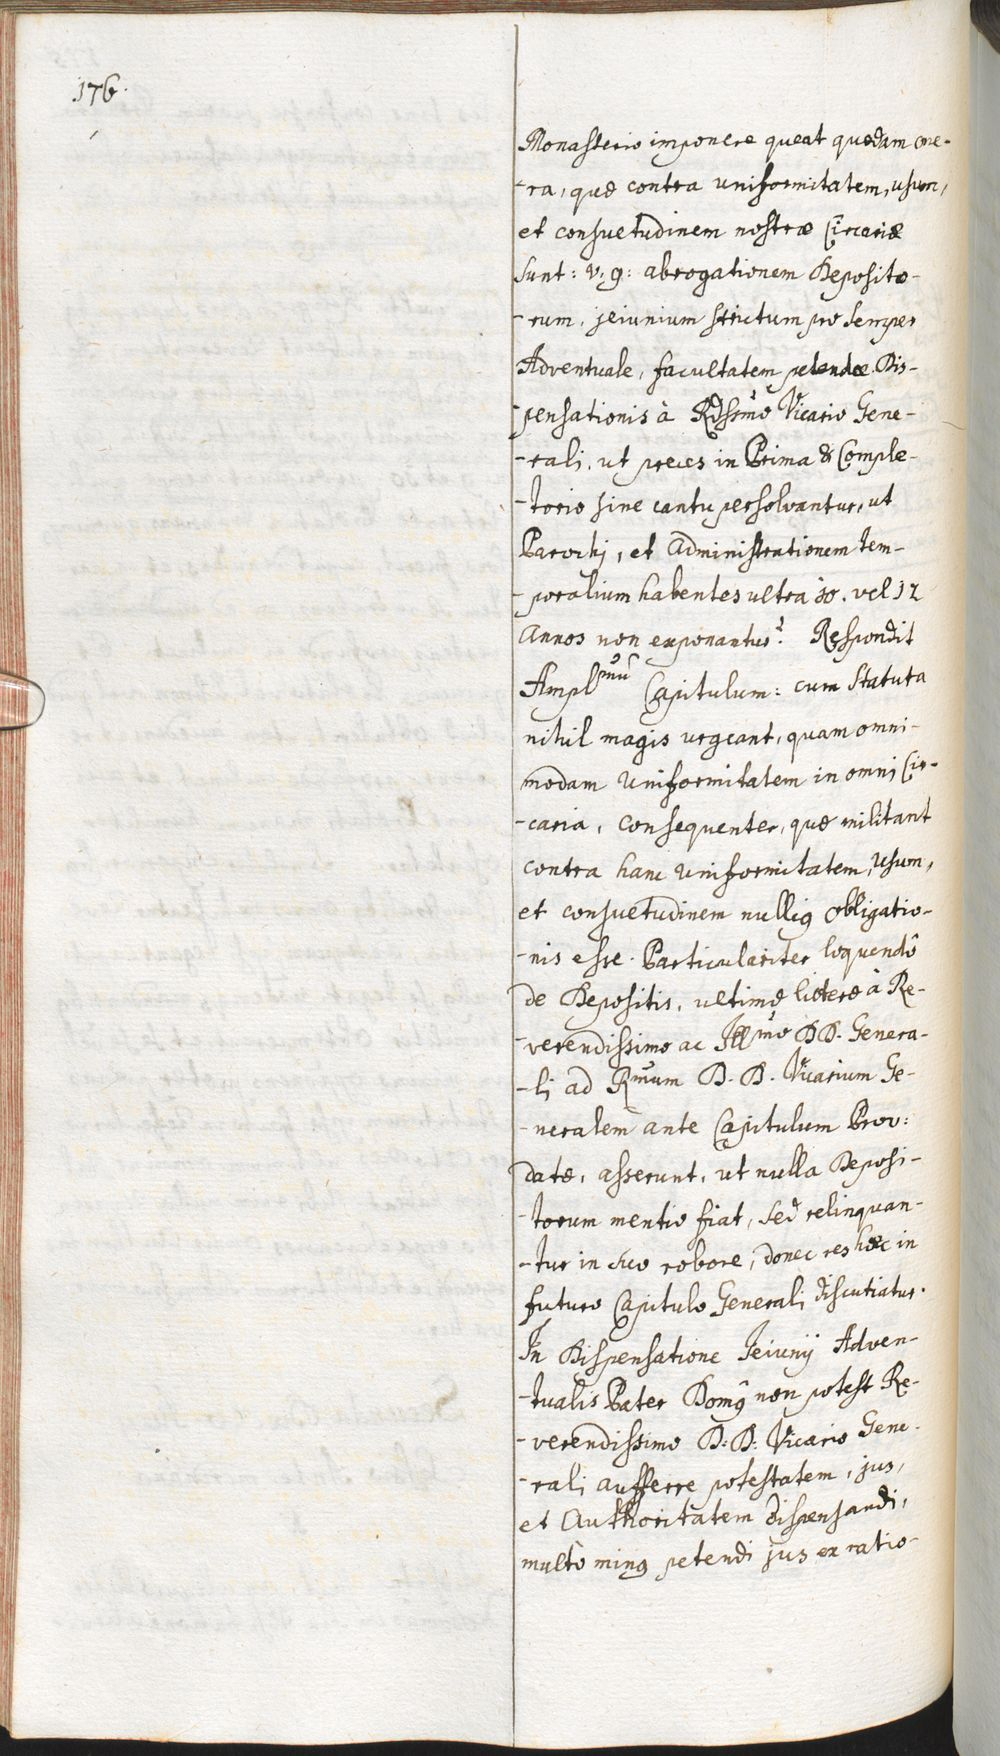 176.
Monasterio imponere queat quædam one-
-ra, quæ contra uniformitatem, usum,
et consuetudinem nostræ Circariæ
sunt: v. g: abrogationem Deposito-
-rum, jeiunium strictum pro semper
Adventuale, facultatem petendæ Dis-
-pensationis à Rdssmo Vicario Gene-
-rali, ut preces in Prima & Comple-
-torio sine cantu persolvantur, ut
Parochj, et administrationem tem-
-poralium habentes ultra 10. vel 12
annos non exponantur? Respondit
Amplmu Capitulum: cum statuta
nihil magis urgeant, quam omni-
-modam Uniformitatem in omni Cir-
-caria, consequenter, quæ militant
contra hanc Uniformitatem, Usum,
et consuetudinem nullius obligatio-
-nis esse. Particulariter loquendô
de Depositis, ultimæ litteræ à Re-
-verendissimo ac Illmo DD. Genera-
-li ad Rmum D. D. Vicarium Ge-
-neralem ante Capitulum Prov:
datæ, asserunt, ut nulla Deposi-
-torum mentio fiat, sed relinquan-
-tur in suo robore, donec res hæc in
futuro Capitulo Generali discutiatur.
In Dispensatione Jeiunij Adven-
-tualis Pater Domus non potest Re-
-verendissimo D: D: Vicario Gene-
-rali aufferre potestatem, jus,
et Authoritatem dispensandi,
multò minus petendi jus ex ratio-